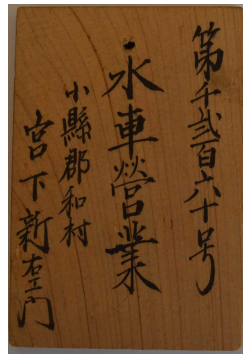 第千弐百六十号
水車營業
小縣郡和村
宮下新右エ門